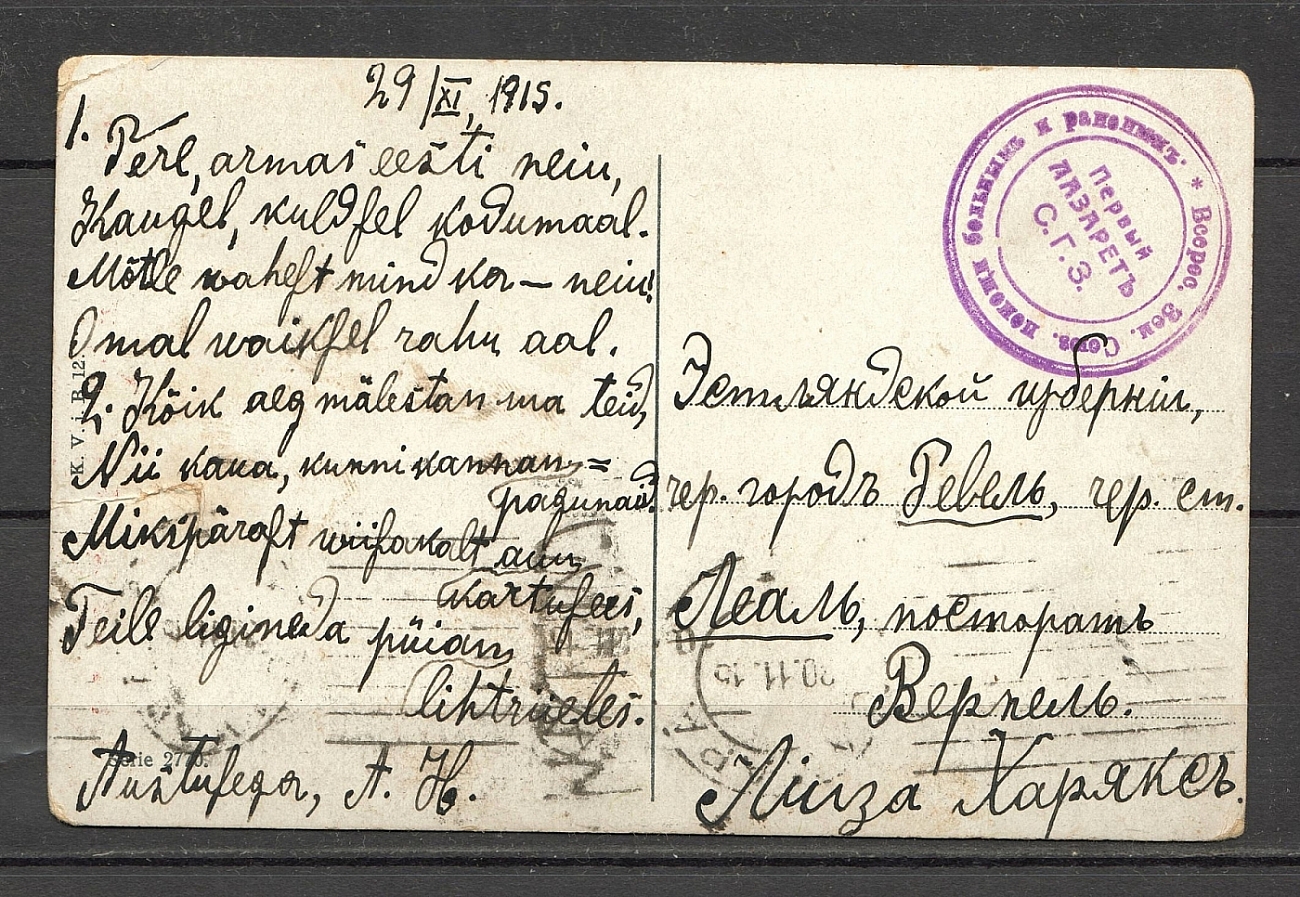 29/XI, 1915.
1. Tere, armas eesti neiu,
Kaugel, kuldsel kodumaal.
Mõtle wahest mind ka — neiu!
Omal waiksel rahu aal.
2. Kõik aeg mälestan ma teid,
Nii kaua, kunni kannan=
pagunaid.
Mikspärast wiisakalt auu
kartuses,
Teile ligineda püian
lihtrüetes.
Austusega, A. H.
K. V. i. B. 12
Serie 2770.
Всерос. Зем. Союз. помощи больнымъ и раненымъ. *
Первый
ЛАЗАРЕТЪ
С.Г.З.
Эстляндской губерніи,
чер. городъ Ревель, чер. ст.
Леаль, пасторатъ
Верпель.
Лиза Харяксъ.
30.11.15